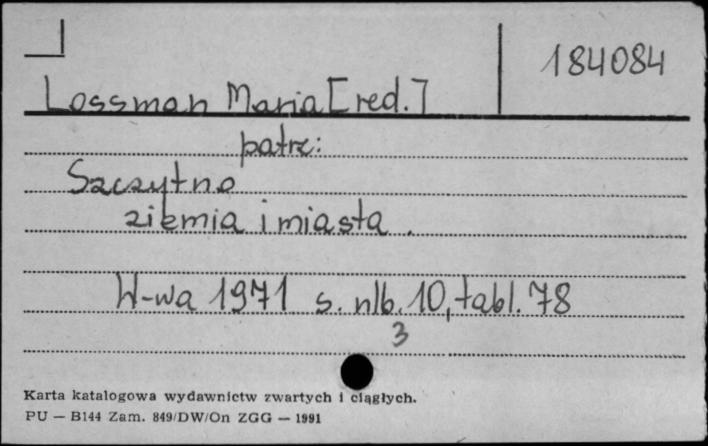 184084
Lossman Maria [red.]
patrz:
Szczytno
ziemia i miasta.
W-wa 1971 s. nlb. 10, tabl. 78
3
Karta katalogowa wydawnictw zwartych i ciągłych.
PU — B144 Zam. 849/DW/On ZGG — 1991